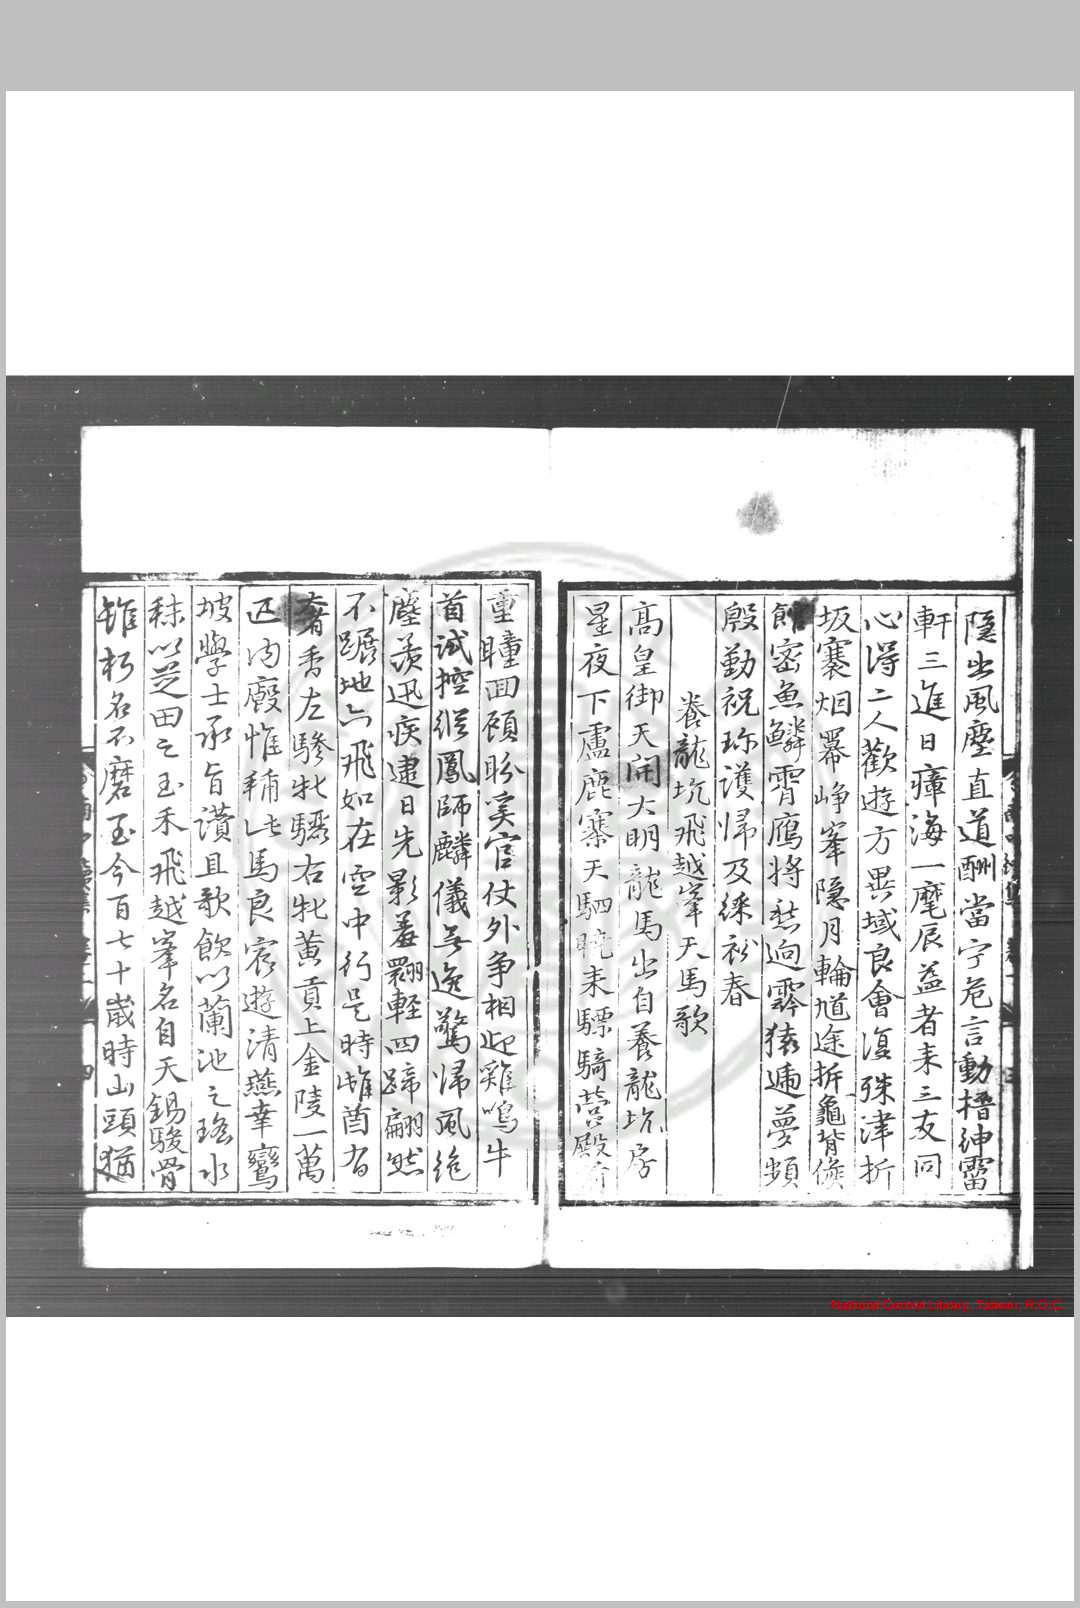 隱出風塵直道酬當宁危言動搢紳雷
軒三進日瘴海一麾辰益者来三友同
心得二人歡遊方異域良會復殊津折
坂褰烟冪峥峯隱月輪馗途拆龜背候
館密魚鱗霄鴈将愁逈霧猿逓夢頻
殷勤祝珎護歸及綵衫春
養龍坑飛越峯天馬歌
髙皇御天開大明龍馬出自養龍坑房
星夜下盧鹿寨天駟曉来驃騎營殿前
重瞳回顧盼奚官仗外争相迎雞鳴牛
首試控縱鳳師麟儀無逸驚歸風絶
塵羡迅疾逮日先影羞翾輕四蹄翩然
不蹍地六飛如在空中行是時雄酋有
奢香左驂牝驪右牝黄貢上金陵一萬
匹内廄惟稱此馬良宸遊清燕幸鸞
坡學士承旨讃且歌飲以蘭池之瑶水
秣以芝田之玉禾飛越峯名自天錫駿骨
雖朽名不磨至今百七十歳時山頭猶
National Central Library, Taiwan, R.O.C.